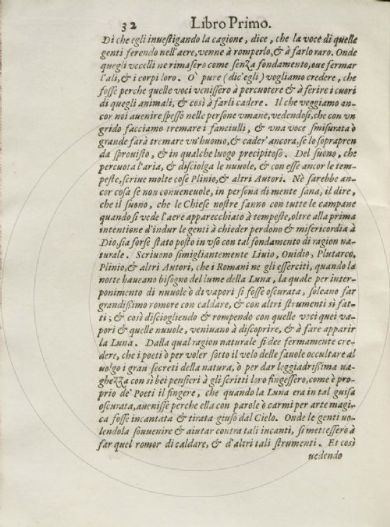 32 Libro Primo.
Di che egli inuestigando la cagione, dice, che la voce di quelle
genti ferendo nell'aere, venne à romperlo, & à farlo raro. Onde
quegli vccelli ne rimasero come senza fondamento, oue fermar
l'ali, & i corpi loro. O' pure (dic'egli) vogliamo credere, che
fosse perche quelle voci venissero à percuotere & à ferire i cuori
di quegli animali, & così à farli cadere. Il che veggiamo an-
cor noi auuenire spesso nelle persone vmane, vedendosi, che con vn
grido facciamo tremare i fanciulli, & vna voce smisurata ò
grande farà tremare vn'huomo, & cader' ancora, se lo soprapren
da sprouisto, & in qualche luogo precipitoso. Del suono, che
percuota l'aria, & disciolga le nuuole, & con esse ancor le tem-
peste, scriue molte cose Plinio, & altri Autori. Nè sarebbe an-
cor cosa se non conueneuole, in persona di mente sana, il dire,
che il suono, che le Chiese nostre fanno con tutte le campane
quando si vede l'aere apparecchiato à tempeste, oltre alla prima
intentione d'indur le genti à chieder perdono & misericordia à
Dio, sia forse stato posto in vso con tal fondamento di ragion natu
rale. Scriuono similgiantemente Liuio, Ouidio, Plutarco,
Plinio, & altri Autori, che i Romani ne gli esserciti, quando la
notte haueano bisogno del lume della Luna, la quale per inter-
ponimento di nuuole ò di vapori si fosse oscurata, soleano far
grandissimo romore con caldare, & con altri strumenti si fat-
ti; & così disciogliendo & rompendo con quelle voci quei va-
pori & quelle nuuole, veniuano à discoprire, & à fare apparir
la Luna. Dalla qual ragion naturale si dee fermamente cre-
dere, che i poeti ò per voler sotto il velo delle fauole occultare al
uolgo i gran secreti della natura, ò per dar leggiadrissima ua
ghezza con si bei pensieri à gli scritti loro fingessero, come è pro-
prio de' Poeti il fingere, che quando la Luna era in tal guisa
oscurata, auenisse perche ella con parole ò carmi per arte magi-
ca fosse incantata & tirata giuso dal Cielo. Onde le genti uo-
lendola souuenire & aiutar contra tali incanti, si mettessero à
far quel romor di caldare, & d'altri tali strumenti. Et così
uedendo